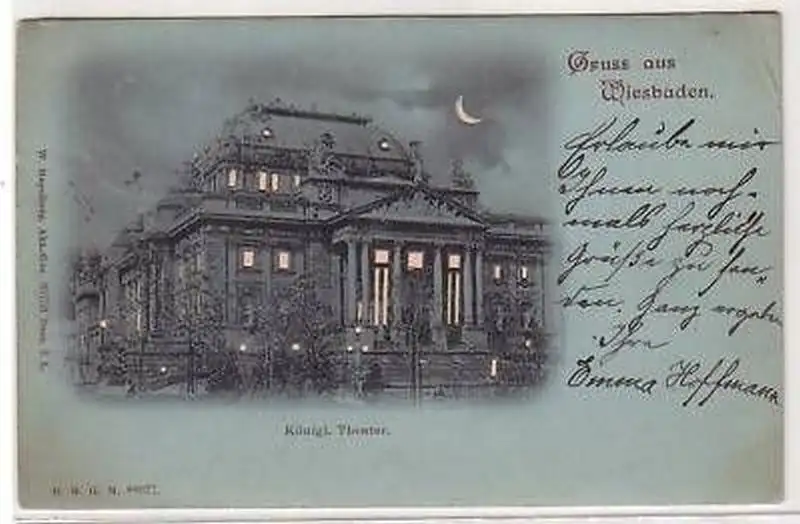 Gruss aus
Wiesbaden.
Erlaube mir
Ihnen noch-
mals herzliche
Grüße zu sen-
den. Ganz ergeben
Ihre
Emma Hoffmann
Königl. Theater.
W.
D. R. G. M. 88077.